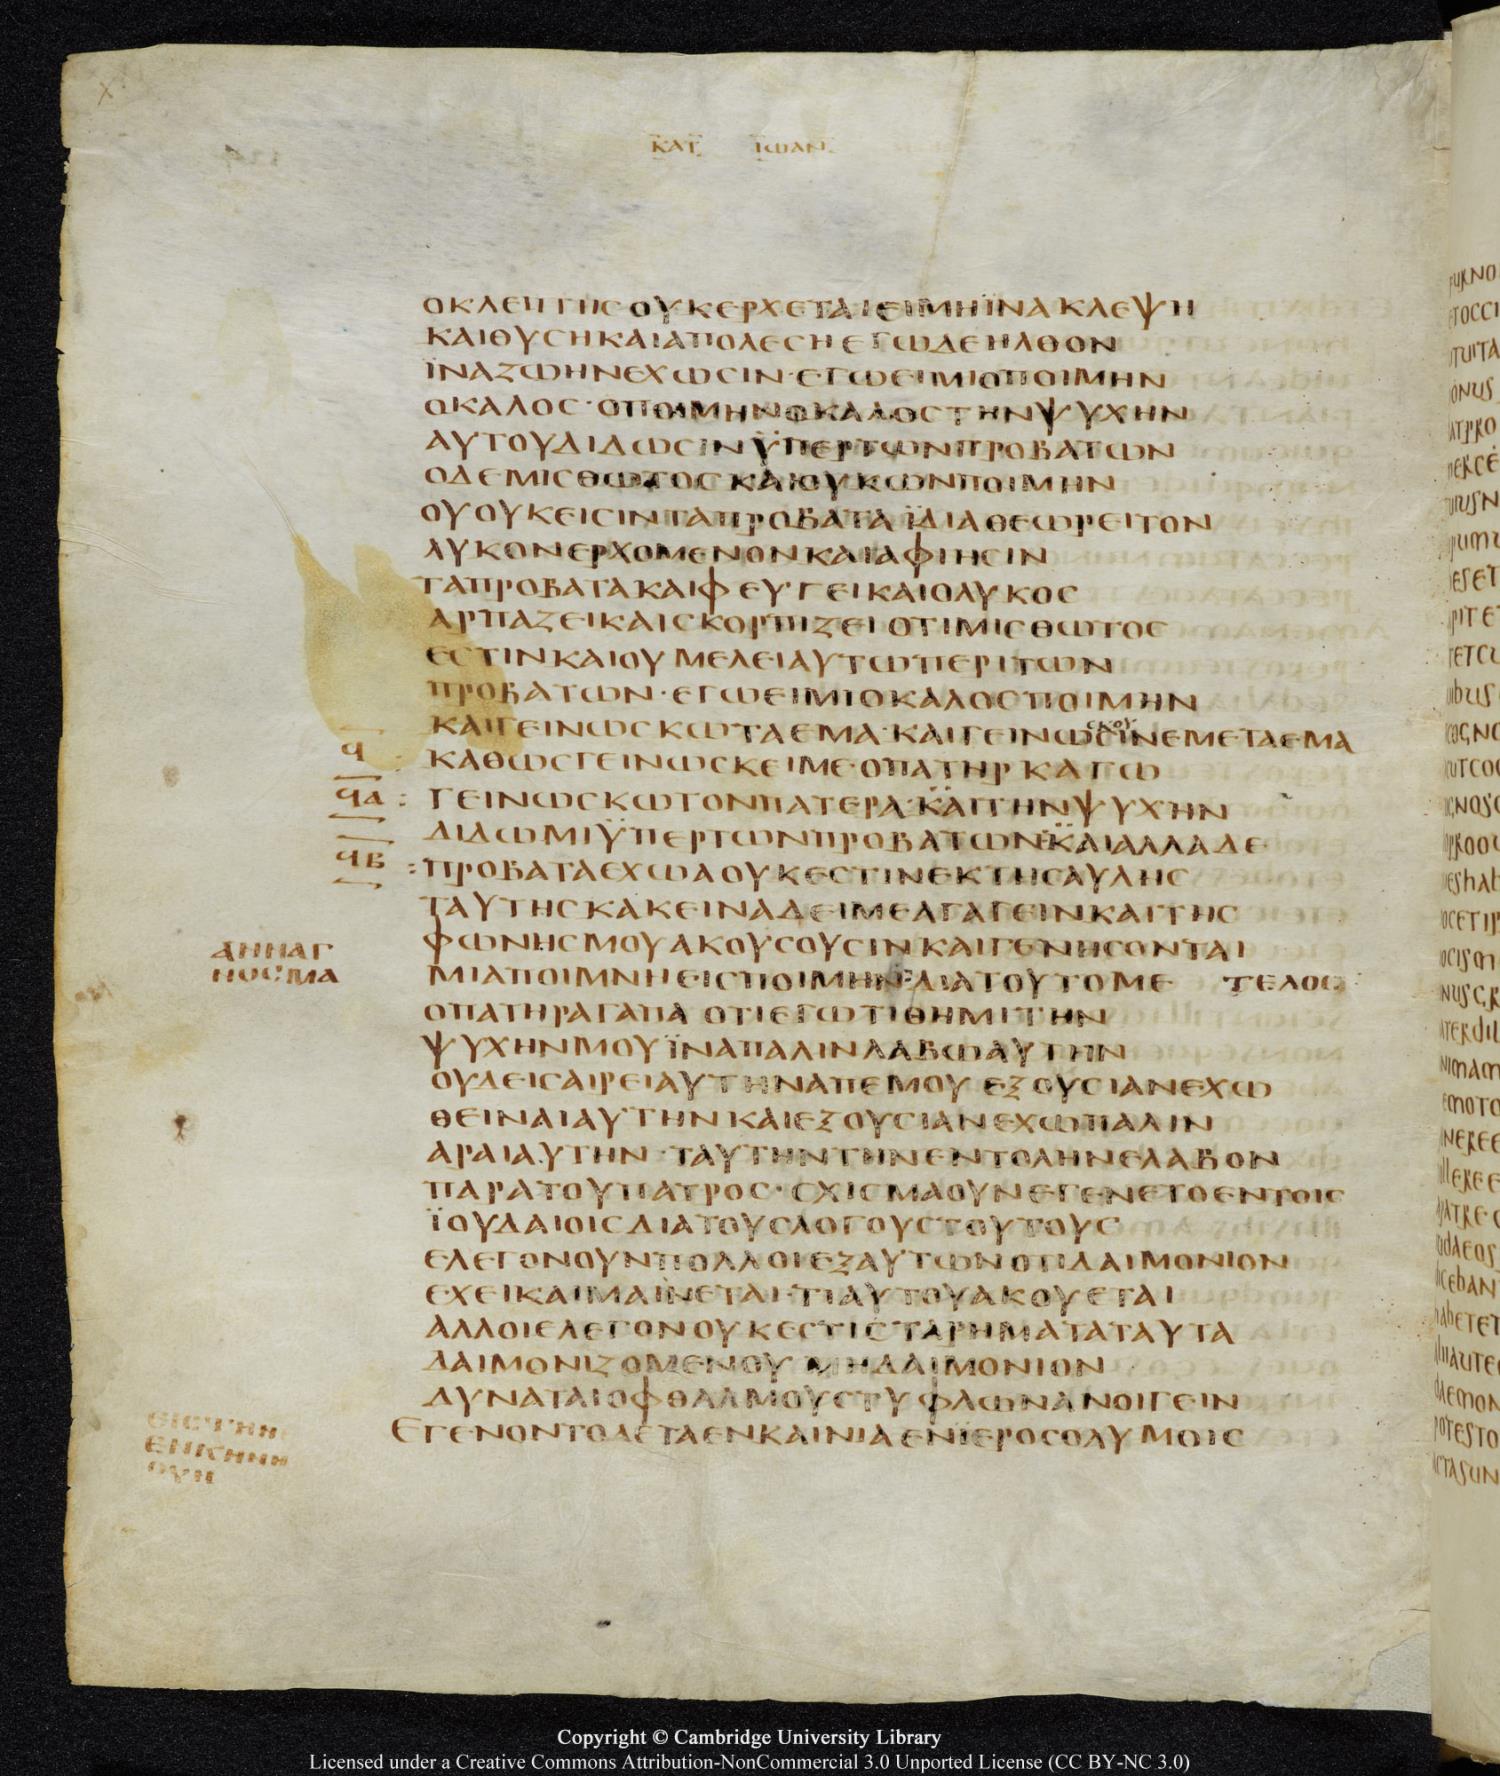 ΚΑΤ ΙΩΑΝ
ΟΚΛΕΠΤΗCΟΥΚΕΡΧΕΤΑΙΕΙΜΗΪΝΑΚΛΕΨΗ
ΚΑΙΘΥCΗΚΑΙΑΠΟΛΕCΗΕΓΩΔΕΗΛΘΟΝ
ΪΝΑΖΩΗΝΕΧΩCΙΝ·ΕΓΩΕΙΜΙΟΠΟΙΜΗΝ
ΟΚΑΛΟC·ΟΠΟΙΜΗΝΟΚΑΛΟCΤΗΝΨΥΧΗΝ
ΑΥΤΟΥΔΙΔΩCΙΝΫΠΕΡΤΩΝΠΡΟΒΑΤΩΝ
ΟΔΕΜΙCΘΩΤΟCΚΑΙΟΥΚΩΝΠΟΙΜΗΝ
ΟΥΟΥΚΕΙCΙΝΤΑΠΡΟΒΑΤΑΪΔΙΑΘΕΩΡΕΙΤΟΝ
ΛΥΚΟΝΕΡΧΟΜΕΝΟΝΚΑΙΑΦΙΗCΙΝ
ΤΑΠΡΟΒΑΤΑΚΑΙΦΕΥΓΕΙΚΑΙΟΛΥΚΟC
ΑΡΠΑΖΕΙΚΑΙCΚΟΡΠΙΖΕΙΟΤΙΜΙCΘΩΤΟC
ΕCΤΙΝΚΑΙΟΥΜΕΛΕΙΑΥΤΩΠΕΡΙΤΩΝ
ΠΡΟΒΑΤΩΝ·ΕΓΩΕΙΜΙΟΚΑΛΟCΠΟΙΜΗΝ
CΚΟΥ
ΚΑΙΓΕΙΝΩCΚΩΤΑΕΜΑ·ΚΑΙΓΕΙΝΩCΙΝΕΜΕΤΑΕΜΑ
Ϥ ΚΑΘΩCΓΕΙΝΩCΚΕΙΜΕ·ΟΠΑΤΗΡΚΑΓΩ
ϤΑ : ΓΕΙΝΩCΚΩΤΟΝΠΑΤΕΡΑ·ΚΑΙΤΗΝΨΥΧΗΝ
ΔΙΔΩΜΙΫΠΕΡΤΩΝΠΡΟΒΑΤΩΝ·ΚΑΙΑΛΛΑΔΕ
ϤΒ : ΠΡΟΒΑΤΑΕΧΩΑΟΥΚΕCΤΙΝΕΚΤΗCΑΥΛΗC
ΤΑΥΤΗCΚΑΚΕΙΝΑΔΕΙΜΕΑΓΑΓΕΙΝΚΑΙΤΗC
ΑΝΝΑΓ ΦΩΝΗCΜΟΥΑΚΟΥCΟΥCΙΝΚΑΙΓΕΝΗCΟΝΤΑΙ
ΝΟCΜΑ ΜΙΑΠΟΙΜΝΗΕΙCΠΟΙΜΗΝΔΙΑΤΟΥΤΟΜΕ ΤΕΛΟC
ΟΠΑΤΗΡΑΓΑΠΑΟΤΙΕΓΩΤΙΘΗΜΙΤΗΝ
ΨΥΧΗΝΜΟΥΪΝΑΠΑΛΙΝΛΑΒΩΑΥΤΗΝ
ΟΥΔΕΙCΑΙΡΕΙΑΥΤΗΝΑΠΕΜΟΥΕΞΟΥCΙΑΝΕΧΩ
ΘΕΙΝΑΙΑΥΤΗΝΚΑΙΕΞΟΥCΙΑΝΕΧΩΠΑΛΙΝ
ΑΡΑΙΑΥΤΗΝ·ΤΑΥΤΗΝΤΗΝΕΝΤΟΛΗΝΕΛΑΒΟΝ
ΠΑΡΑΤΟΥΠΑΤΡΟC·CΧΙCΜΑΟΥΝΕΓΕΝΕΤΟΕΝΤΟΙC
ΪΟΥΔΑΙΟΙCΔΙΑΤΟΥCΛΟΓΟΥCΤΟΥΤΟΥC
ΕΛΕΓΟΝΟΥΝΠΟΛΛΟΙΕΞΑΥΤΩΝΟΤΙΔΑΙΜΟΝΙΟΝ
ΕΧΕΙΚΑΙΜΑΙΝΕΤΑΙ·ΤΙΑΥΤΟΥΑΚΟΥΕΤΑΙ
ΑΛΛΟΙΕΛΕΓΟΝΟΥΚΕCΤΙCΤΑΡΗΜΑΤΑΤΑΥΤΑ
ΔΑΙΜΟΝΙΖΟΜΕΝΟΥΜΗΔΑΙΜΟΝΙΟΝ
ΔΥΝΑΤΑΙΟΦΘΑΛΜΟΥCΤΥΦΛΩΝΑΝΟΙΓΕΙΝ
ΕΓΕΝΟΝΤΟΔΕΤΑΕΝΚΑΙΝΙΑΕΝΪΕΡΟCΟΛΥΜΟΙC
ΕΙCΤΗΝ